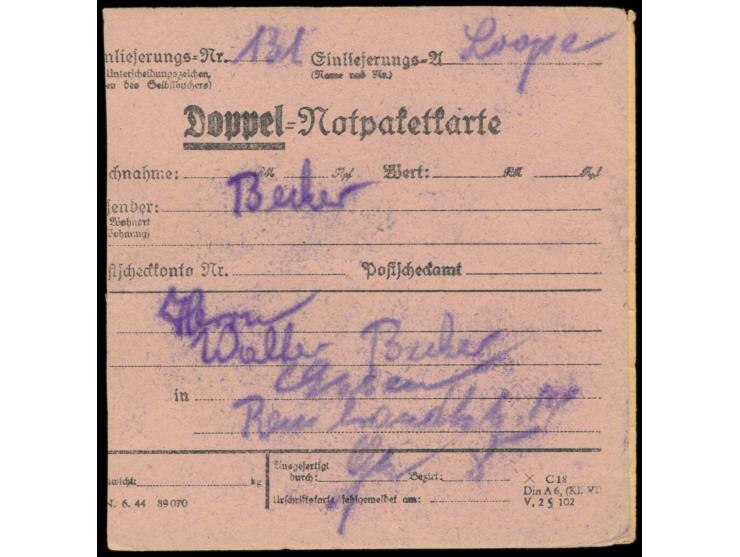 nlieferungs-Nr. 131 Einlieferungs-A Loope
(Unterscheidungszeichen, (Name und Nr.)
en des Selbstbuchers)
Doppel-Notpaketkarte
chnahme: RM Rpf Wert: RM Rpf
sender: Becker
Wohnort
ohnung)
stscheckkonto Nr. Postscheckamt
Herrn
Walter Becker
Essen
in
Ausgefertigt
wicht: kg durch: Bezirk: × C 18
Din A 6, (Kl. VI
N. 6. 44 89 070 Urschriftskarte fehlgemeldet am: V, 2 § 102